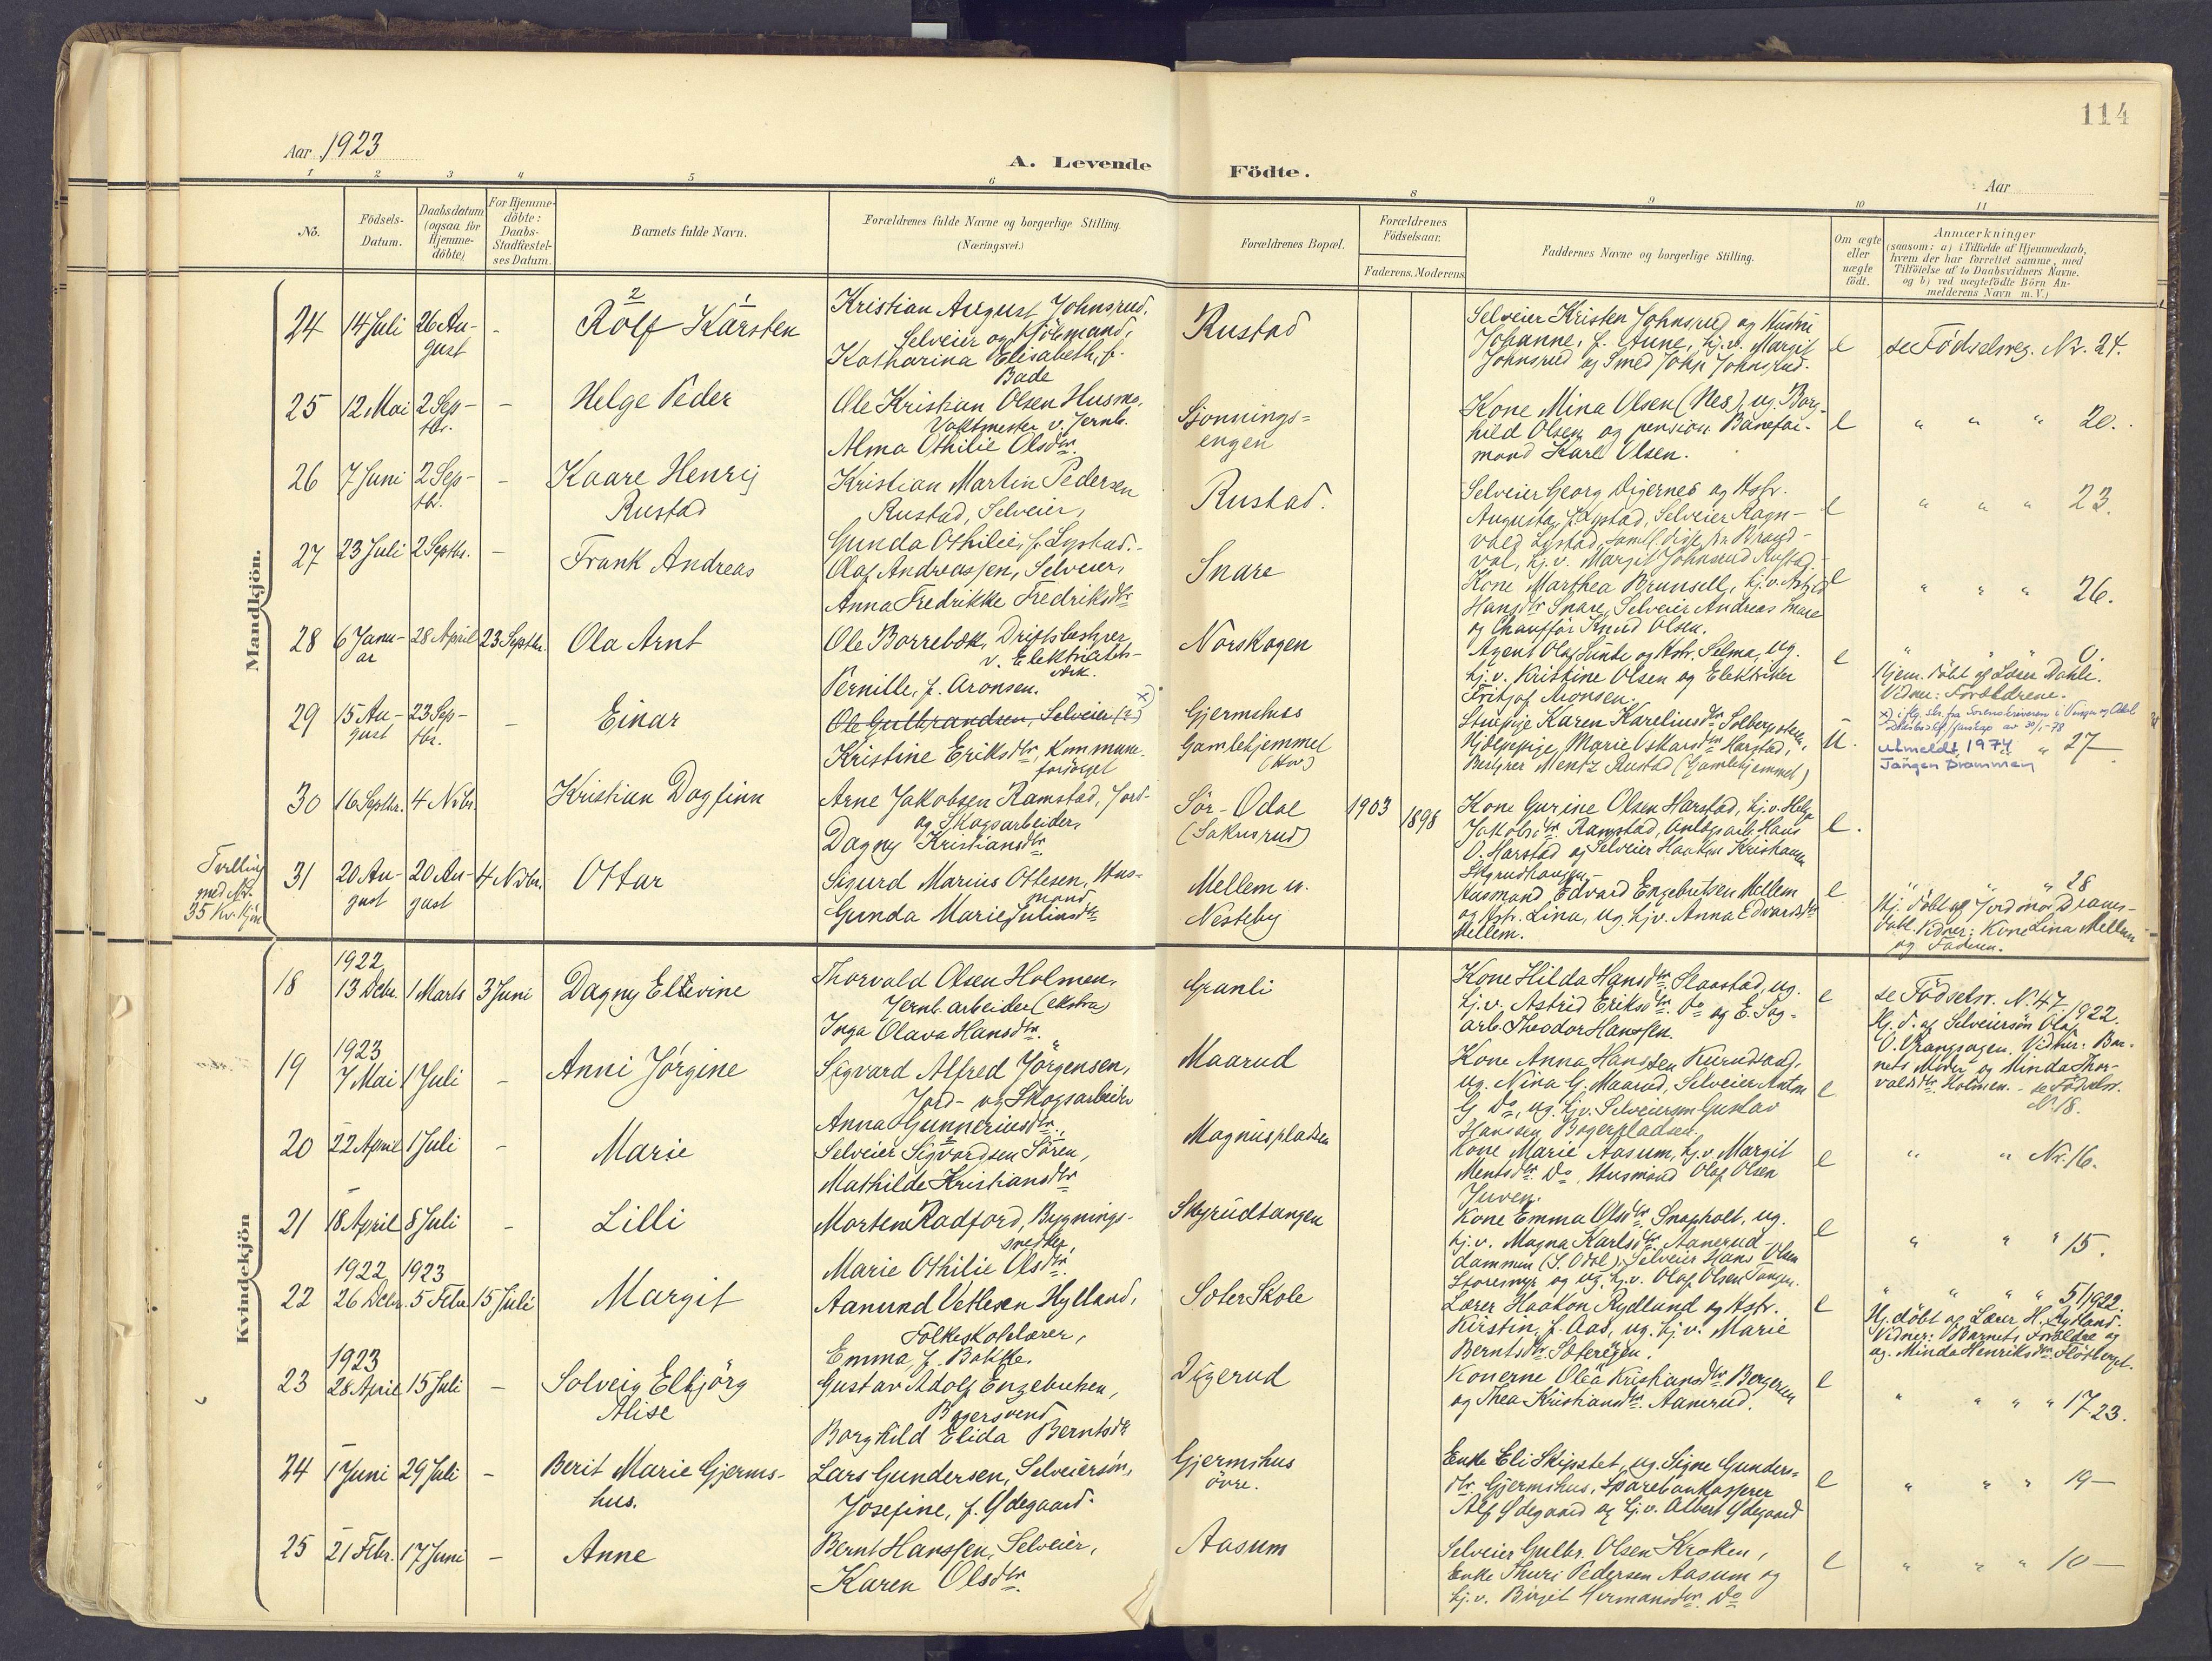 114
Aar 1923
A. Levende Födte.
Aar
1 2 3 4 5 6 8 9 10 11
No.
Födsels-Datum.
Daabsdatum (ogsaa for Hjemme-döbte)
For Hjemme-döbte: Daabs-Stadfæstel-ses Datum.
Barnets fulde Navn.
Forældrenes fulde Navne og borgerlige Stilling. (Næringsvei.)
Forældrenes Bopæl.
Forældrenes Födselsaar.
Faderens. Moderens.
Faddernes Navne og borgerlige Stilling.
Om ægte eller uægte födt.
Anmærkninger
(saasom: a) i Tilfælde af Hjemmedaab,
hvem der har forrettet samme, med
Tilföielse af to Daabsvidners Navne.
og b) ved uægtefödte Börn An-
melderens Navn m. V.)
Mandkjön.
24 14 Juli 26 Au-
gust -
2 1
Rolf Karsten
Kristian August Johnsrud,
Selveier og
Katharina Elisabeth, f.
Bade
Rustad
Selveier Kristen Johnsrud og Hustru
Johanne, f. Aune, hj.v. Margit
Johnsrud og Smed John Johnsrud.
e
se Födselsreg. Nr. 24.
25 12 Mai 2 Sep-
tbr. -
Helge Peder
Ole Kristian Olsen Husmo,
Vaktmester v. Jernb.
Alma Othilie Olsdtr.
Sjonnings=
engen
Kone Mina Olsen (Nes), ug. Borg-
hild Olsen og pension. Banefor-
mand Karl Olsen.
e
" " " 20.
26 7 Juni 2 Sep-
tbr. -
Kaare Henrij
Rustad
Kristian Martin Pedersen
Rustad, Selveier,
Gunda Othilie, f. Lystad.
Rustad.
Selveier Georg Digernes og Hstr.
Augusta, f. Lystad, Selveier Ragn-
vald Lystad,
val, hj.v. Margit Johnsrud Rustad.
e
" " " 23.
27 23 Juli 2 Septbr. -
Frank Andreas
Olaf Andreassen, Selveier,
Anna Fredrikke Fredriksdtr
Snare
Kone Marthea Brunsell, hj.v. Astrid
Hansdtr Snare, Selveier Andreas Snare
og Chauffør Knud Olsen.
e
" " " 26.
28 6 Janu-
ar 28 April 23 Septbr.
Ola Arnt
Ole Borrebæk, Driftsbestyrer
v. Elektricitets-
verk.
Pernille, f. Aronsen.
Norskogen
Agent Olaf Sunde og Hstr. Selma, ug.
hj.v. Kristine Olsen og Elektriker
Fritjof Aronsen.
e
" " 0.
Hjem. döbt af Dahli.
Vidner: Forældrene.
29 15 Au-
gust 23 Sep-
tbr. -
Einar
Ole Gulbrandsen, Selveier (?) x)
Kristine Eriksdtr, Kommune-
forsörget
Gjermshus
Gamlehjemmet
Karen Kareliusdtr Solbergsteen,
Marie Oskarsdtr Harstad,
Bestyrer Mentz Rustad (Gamlehjemmet)
U.
x) iflg. skr. fra Sorenskriveren i Vinger og Odal
av 30/1-78
Utmeldt 1974 " 27
Tangen Drammen
30 16 Septbr. 4 Nvbr.
Kristian Dagfinn
Arne Jakobsen Ramstad, Jord-
og Skogsarbeider,
Dagny Kristiansdtr
Sör-Odal
(Sakusrud)
1903 1898
Kone Gurine Olsen Harstad, hj.v. Helga
Jakobsdtr Ramstad, Hans
O. Harstad og Selveier Haakon Kristiansen
Skyrudhaugen.
e.
Tvilling
med Nr.
35 Kv.kjön
31 20 Au-
gust 20 Au-
gust 4 Nvbr.
Ottar
Sigurd Marius Ottesen, Hus-
mand
Gunda Marie Juliusdtr
Mellem u.
Nesteby
Husmand Edvard Engebretsen Mellem
og Hstr. Lina, ug. hj.v. Anna Edvardsdtr
Mellem.
e
" " " 28
Hj. döbt af Jordmor
Vidner: Kone Lina Mellem
og Faderen.
Kvindekjön
18 1922
13 Decbr. 1 Marts 3 Juni
Dagny Eltevine
Thorvald Olsen Holmen,
Jernb. arbeider (ekstra)
Inga Olava Hansdtr.
Granli
Kone Hilda Hansdtr. Slaastad, ug.
hj.v. Astrid Eriksdtr. Do og E. Sag-
arb. Theodor Hanssen.
e
se Födselsr. N. 47 1922.
Hj. d. af Selveiersön Olaf
O. Vrangsagen. Vidner: Bar-
nets Moder og Minda Thor-
valdsdtr Holmen. - se Födselsr.
N. 18.
19 1923
7 Mai 1 Juli -
Anni Jörgine
Sigvard Alfred Jörgensen,
Jord- og Skogsarbeider
Anna Gunneriusdtr.
Maarud
Kone Anna Hanssen Kurudsand,
ug. Nina G. Maarud, Selveier Anton
G. Do, ug. hj.v. Selveiersön Gustav
Hanssen Bagerpladsen.
e
20 22 April 1 Juli -
Marie
Selveier Sigvardsen Sören,
Mathilde Kristiansdtr
Magnuspladsen
Kone Marie Aasum, hj.v. Margit
Mentsdtr. Do, Husmand Olaf Olsen
Juven.
e
" " Nr. 16.
21 18 April 8 Juli -
Lilli
Morten Radford, Bygnings-
snedker,
Marie Othilie Olsdtr.
Skyrudtangen
Kone Emma Olsdtr. Snapholt, ug.
hj.v. Magna Karlsdtr Aanerud-
dammen (S. Odal), Selveier Hans Olsen
Storemyr og ug. hj.v. Olaf Olsen Tangen.
e
" " " 15.
22 1922 1923
26 Decbr. 5 Febr. 15 Juli
Margit
Aanund Vetlesen Hylland,
Folkeskolelærer,
Emma, f. Bakke.
Soter Skole
Lærer Haakon Rydland og Hstr.
Kirstin, f. Aas, ug. hj.v. Marie
Berntsdtr. Sotereien.
e
" " " " 51 1922.
Hj. döbt af Lærer H. Rydland.
Vidner: Barnets Forældre og
ug. Minda Henriksdtr Flötberget.
23 1923
28 April 15 Juli -
Solveig Elbjörg
Alise
Gustav Adolf Engebretsen,
Bagersvend
Borghild Elida Berntsdtr
Digerud
Konerne Olea Kristiansdtr Bergersen
og Thea Kristiansdtr. Aamrud.
e
" " " " 17. 23.
24 1 Juni 29 Juli -
Berit Marie Gjerms-
hus.
Lars Gundersen, Selveiersön,
Josefine, f. Ödegaard.
Gjermshus
övre.
Enke Eli Skipstet, ug. Signe Gunders-
dtr. Gjermshus, Sparebankkasserer
Alf Ödegaard og hj.v. Albert Ödegaard
e
" " " 19
25 21 Febr. 17 Juni -
Anne
Bernt Hanssen, Selveier,
Karen Olsdtr.
Aasum
Selveier Gulbr. Olsen Kroken,
Enke Thuri Pedersen Aasum og
hj.v. Birgit Hermansdtr. Do
e
" " " 10